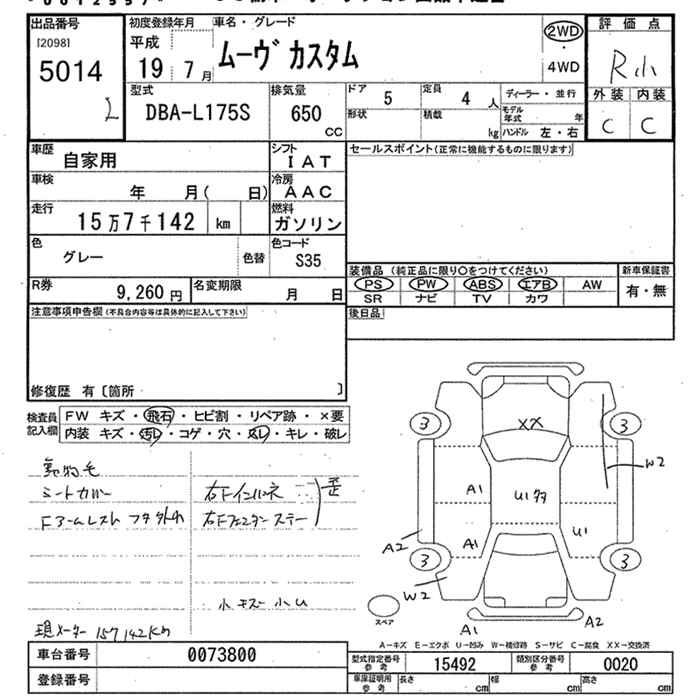 出品番号
[2098]
5014
初度登録年月
平成
19 7月
車名・グレード
ムーヴ カスタム
2WD
・
4WD
評価点
R小
外装 内装
C C
型式
DBA-L175S
排気量
650
CC
ドア
5
定員
4 人
形状
積載
kg
ディーラー・並行
モデル年式 年
ハンドル 左・右
車歴
自家用
シフト
IAT
車検
年 月( 日)
冷房
AAC
走行
15万7千142 km
燃料
ガソリン
色
グレー
色替
色コード
S35
R券
9,260 円
名変期限
月 日
セールスポイント(正常に機能するものに限ります)
装備品 (純正品に限り〇をつけてください)
PS PW ABS エアB AW
SR ナビ TV カワ
新車保証書
有・無
後日品
注意事項申告欄(不具合内容等は具体的に記入して下さい)
修復歴 有〔箇所 〕
検査員記入欄
FW キズ・飛石・ヒビ割・リペア跡・×要
内装 キズ・汚レ・コゲ・穴・凹レ・キレ・破レ
動物毛
シートカバー
Fアームレスト フタ外れ
右Fインパネ
右Fフェンダーステー
歪
小キズ小U
現メーター157142km
3
3
3
3
XX
A1
U1多
A1
U1
W2
A2
W2
A1
A2
スペア
A－キズ E－エクボ U－凹み W－補修跡 S－サビ C－腐食 XX－交換済
車台番号
0073800
登録番号
型式指定番号
参考
15492
類別区分番号
参考
0020
車庫証明用
参考
長さ cm
幅 cm
高さ cm